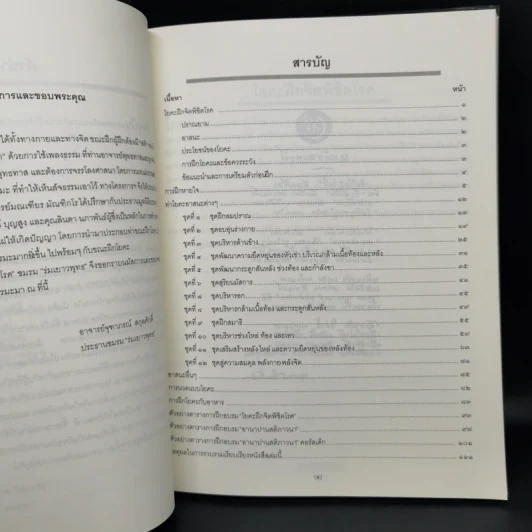 การและขอบพระคุณ
ได้ทั้งทางกายและทางจิต ขณะฝึกผู้ฝึกต้องมี
ด้วยการใช้เพลงธรรม ที่ท่านอาจารย์พุทธทาส
พุทธทาส และต้องการจรรโลงศาสนา โดยการ
มะ ที่ทำให้เห็นสัจธรรมเอาไว้ ทางโครงการฯ
จารย์มณเฑียร มัณฑิกโร ได้ปรึกษากับประธานมูลนิธิ
บุญสูง และคุณลินดา นภาพันธุ์ผู้ซึ่งเป็นหลักในการ
ให้เกิดปัญญา โดยการนำมาประกอบท่าขณะฝึกโยคะ
ธรรมะมากยิ่งขึ้น ไปพร้อมๆ กับขณะฝึกโยคะ
โรค" ชมรม "ร่มเยาวพุทธ" จึงขอกราบนมัสการและขอบ
ธรรมะมา ณ ที่นี้
อาจารย์จุฑาภรณ์ สกุลศักดิ์
ประธานชมรม "ร่มเยาวพุทธ"
สารบัญ
เนื้อหา หน้า
โยคะฝึกจิตพิชิตโรค ๑
ปราณยาม ๒
อาสนะ ๒
ประโยชน์ของโยคะ ๓
การฝึกโยคะและข้อควรระวัง ๓
ข้อแนะนำและการเตรียมตัวก่อนฝึก
การฝึกหายใจ
ท่าโยคะอาสนะต่างๆ
ชุดที่ ๑ ชุดฝึกลมปราณ
ชุดที่ ๒ ชุดอบอุ่นร่างกาย ๑๓
ชุดที่ ๓ ชุดบริหารด้านข้าง ๒๕
ชุดที่ ๔ ชุดพัฒนาความยืดหยุ่นของหัวเข่า บริเวณกล้ามเนื้อท้องและหลัง ๓๑
ชุดที่ ๕ ชุดพัฒนากระดูกสันหลัง ช่วงท้อง และกำลังขา
ชุดที่ ๖ ชุดสุริยนมัสการ
ชุดที่ ๗ ชุดบริหารอก
ชุดที่ ๘ ชุดบริหารกล้ามเนื้อท้อง และกระดูกสันหลัง
ชุดที่ ๙ ชุดฝึกสมาธิ
ชุดที่ ๑๐ ชุดบริหารช่วงไหล่ ท้อง และเอว
ชุดที่ ๑๑ ชุดเสริมสร้างหลังไหล่ และความยืดหยุ่นของหลังท้อง
ชุดที่ ๑๒ ชุดสู่ความสมดุล พลังกายพลังจิต
อาสนะอื่นๆ
การนวดแบบโยคะ
การฝึกโยคะกับอาหาร ๘๓
ตัวอย่างตารางการฝึกอบรม"โยคะฝึกจิตพิชิตโรค" ๙๓
ตัวอย่างตารางการฝึกอบรม"อานาปานสติภาวนา"
ตัวอย่างตารางการฝึกอบรม"อานาปานสติภาวนา" คอร์สเด็ก ๑๐๑
เหตุผลในการรวบรวมเรียบเรียงหนังสือเล่มนี้ ๑๑๑